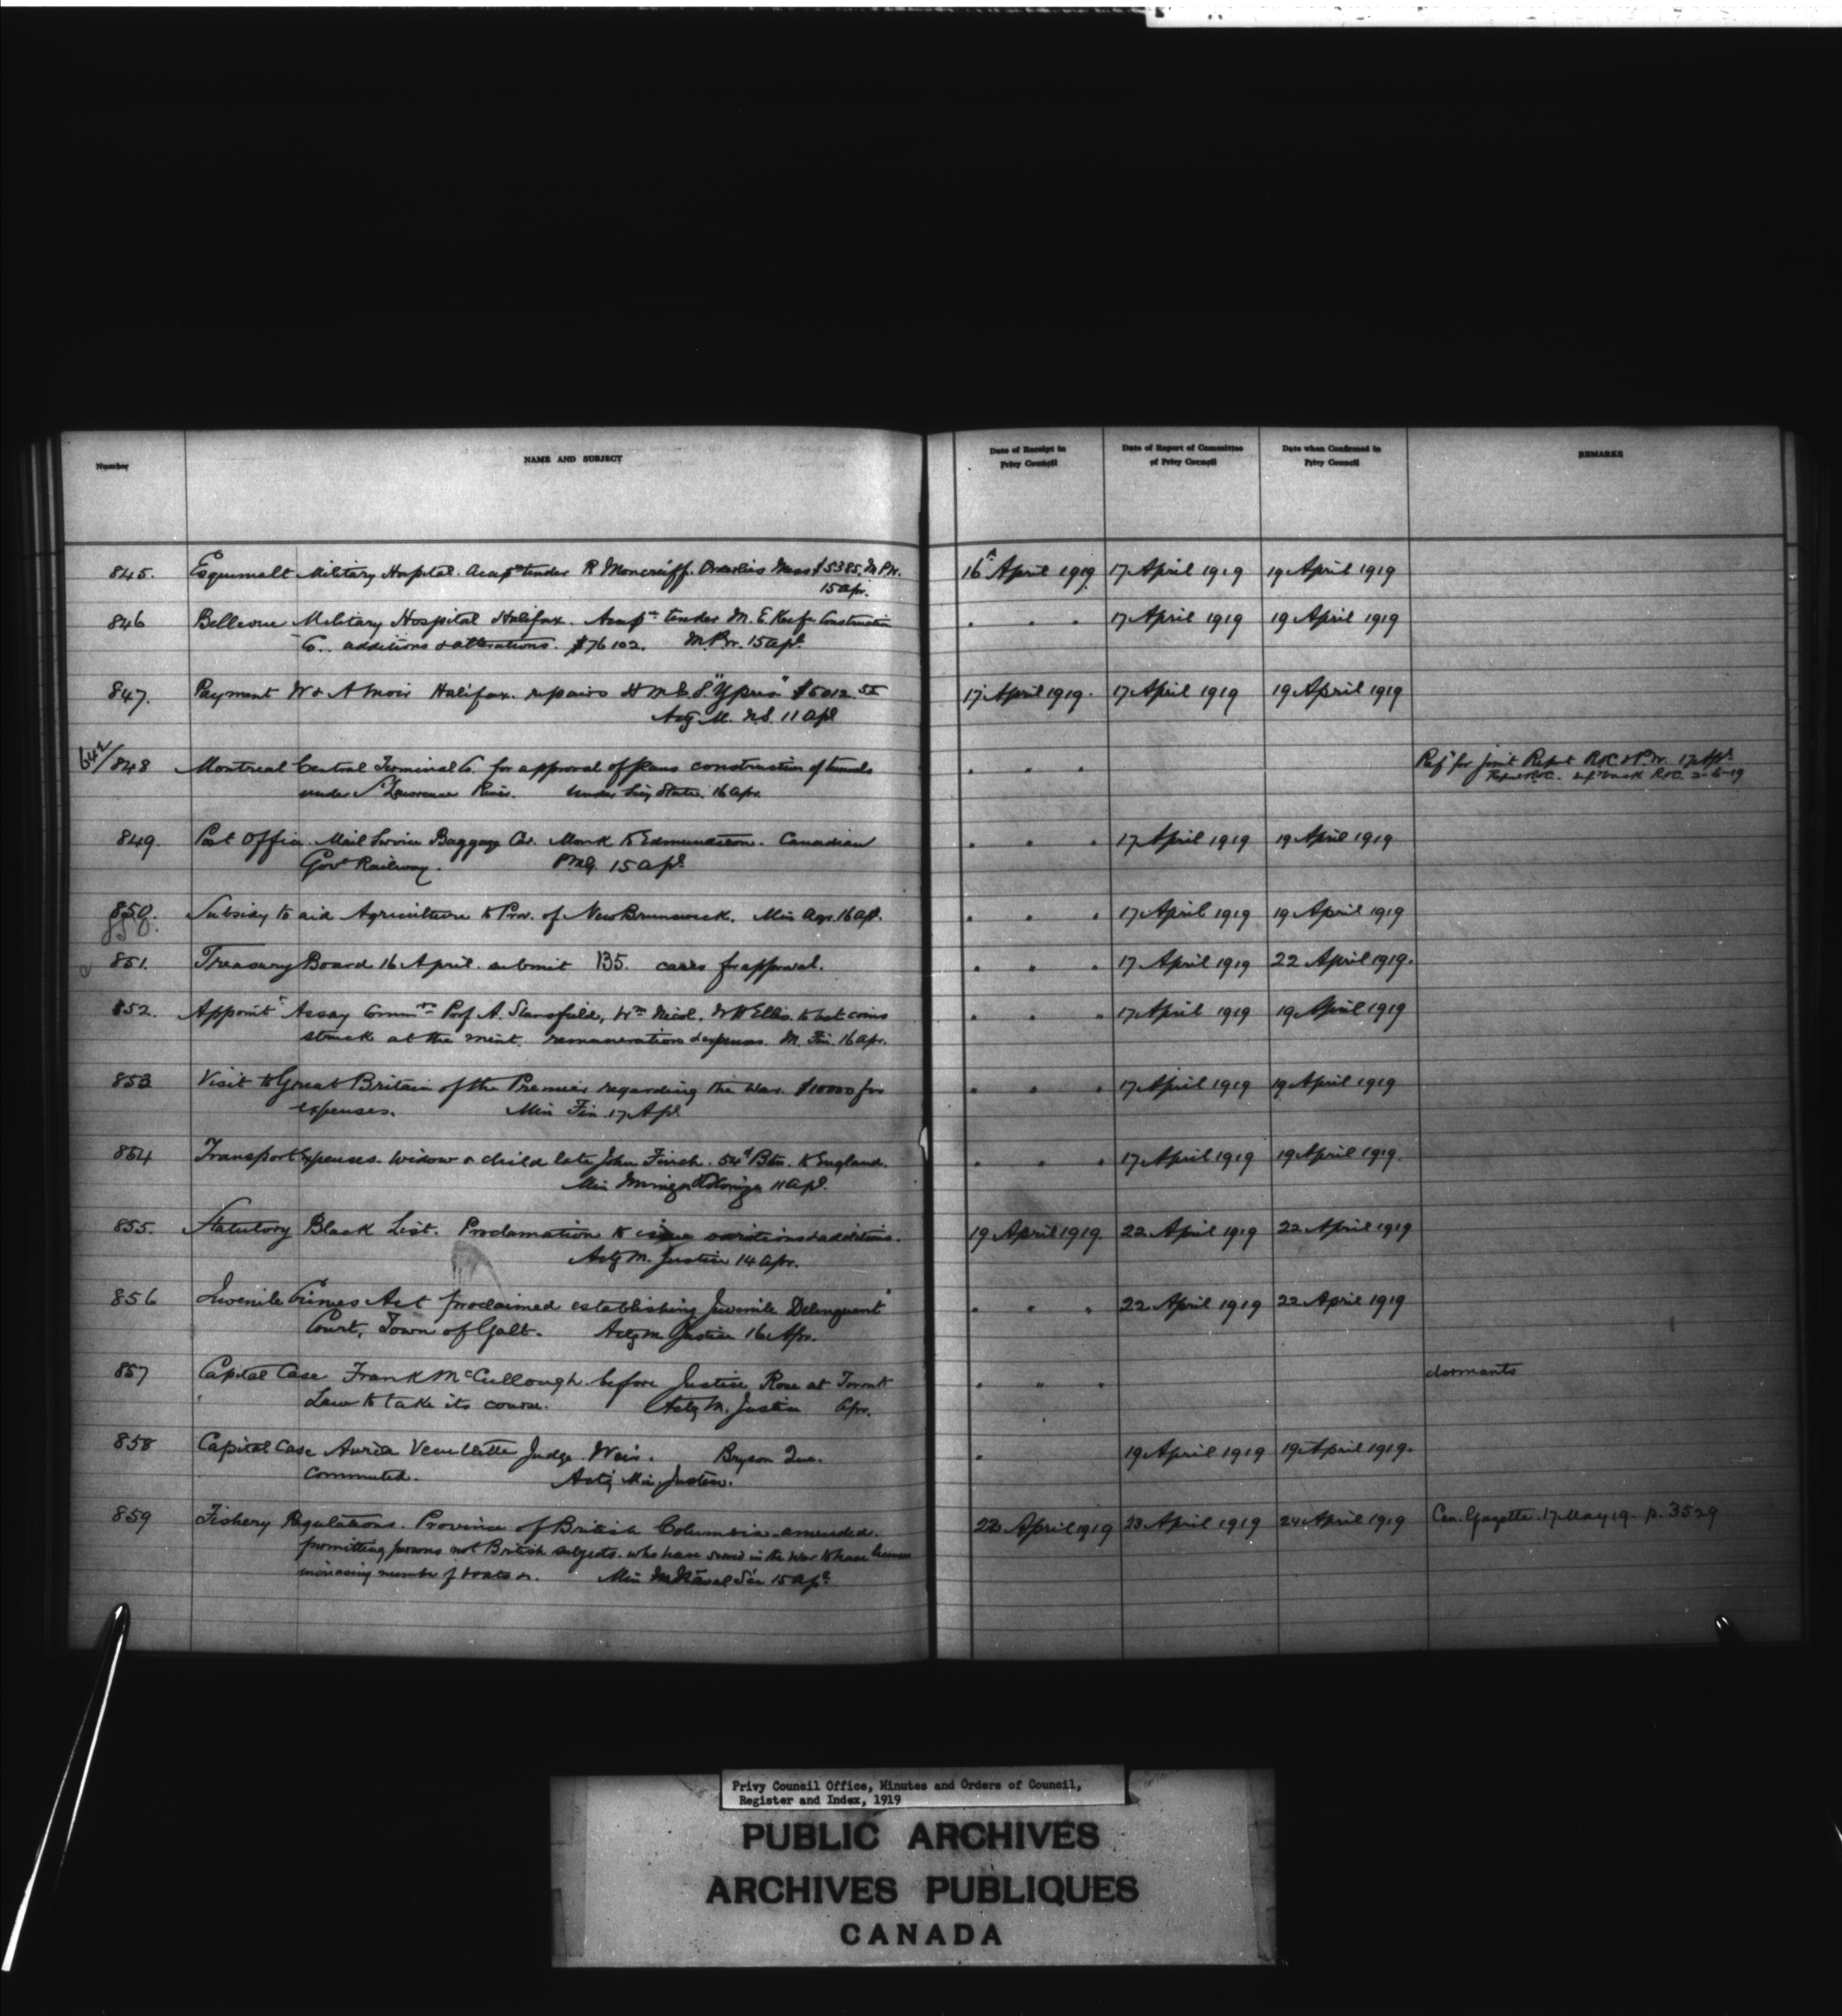 Number
NAME AND SUBJECT
Date of Receipt in Privy Council
Date of Report of Committee of Privy Council
Date when Confirmed in Privy Council
REMARKS
845. Esquimalt Military Hospital. Accepce tender R Moncreiff. Orderlies Mess $5385. M.P.W. 16th April 1919 17 April 1919 19 April 1919
15 Apr.
846 Bellevue Military Hospital Halifax. Accepce tender M. E. Keefe Construction " " " 17 April 1919 19 April 1919
Co. additions & alterations. $76102. M.P.W. 15 Apl.
847. Payment W & A Moir Halifax. repairs H M C S. "Ypres" $5012.52 17 April 1919. 17 April 1919 19 April 1919
Actg M. N.S. 11 Apl
642/848 Montreal Central Terminal Co. for approval of plans construction of tunnels " " " Ref'd for joint Report R&C & P.W. 17 Apl.
under St Lawrence River. Under Secy State. 16 Apr. R&C 2-6-19
849. Post Office. Mail Service Baggage Car. Monk to Edmundston. Canadian " " " 17 April 1919 19 April 1919
Govt Railway. P.M.G. 15 Apl.
850. Subsidy to aid Agriculture to Prov. of New Brunswick. Min Agr. 16 Apl. " " " 17 April 1919 19 April 1919
850.
851. Treasury Board 16 April. submit 135. cases for approval. " " " 17 April 1919 22 April 1919.
852. Appoint't Assay Commrs Prof A. Stansfield, Wm Nicol, W H Ellis. to test coins " " " 17 April 1919 19 April 1919
struck at the mint. remuneration & expenses. M. Fin. 16 Apr.
853 Visit to Great Britain of the Premier regarding the War. $10000 for " " " 17 April 1919 19 April 1919
expenses. Min Fin. 17 Apl.
854 Transport Expenses. Widow & child late John Finch. 54th Btn. to England. " " " 17 April 1919 19 April 1919.
Min Immign & Colonizn 11 Apl.
855. Statutory Black List. Proclamation to issue variations & additions. 19 April 1919. 22 April 1919 22 April 1919
Actg M. Justice 14 Apr.
856 Juvenile Crimes Act proclaimed establishing "Juvenile Delinquent" " " " 22 April 1919 22 April 1919
Court, Town of Galt. Actg M. Justice 16 Apr.
857 Capital Case Frank McCullough. before Justice Rose at Toronto " " " dormants
Law to take its course. Actg M. Justice Apr.
858 Capital Case Judge Weir. Bryson Que. " 19 April 1919 19 April 1919.
Commuted. Actg Min. Justice.
859 Fishery Regulations. Province of British Columbia amended. 22 April 1919 23 April 1919 24 April 1919 Can. Gazette. 17 May 19. p. 3529
permitting persons not British subjects. who have served in the War to have licenses
increasing number of boats &c. Min Naval Ser 15 Apl
Privy Council Office, Minutes and Orders of Council,
Register and Index, 1919
PUBLIC ARCHIVES
ARCHIVES PUBLIQUES
CANADA